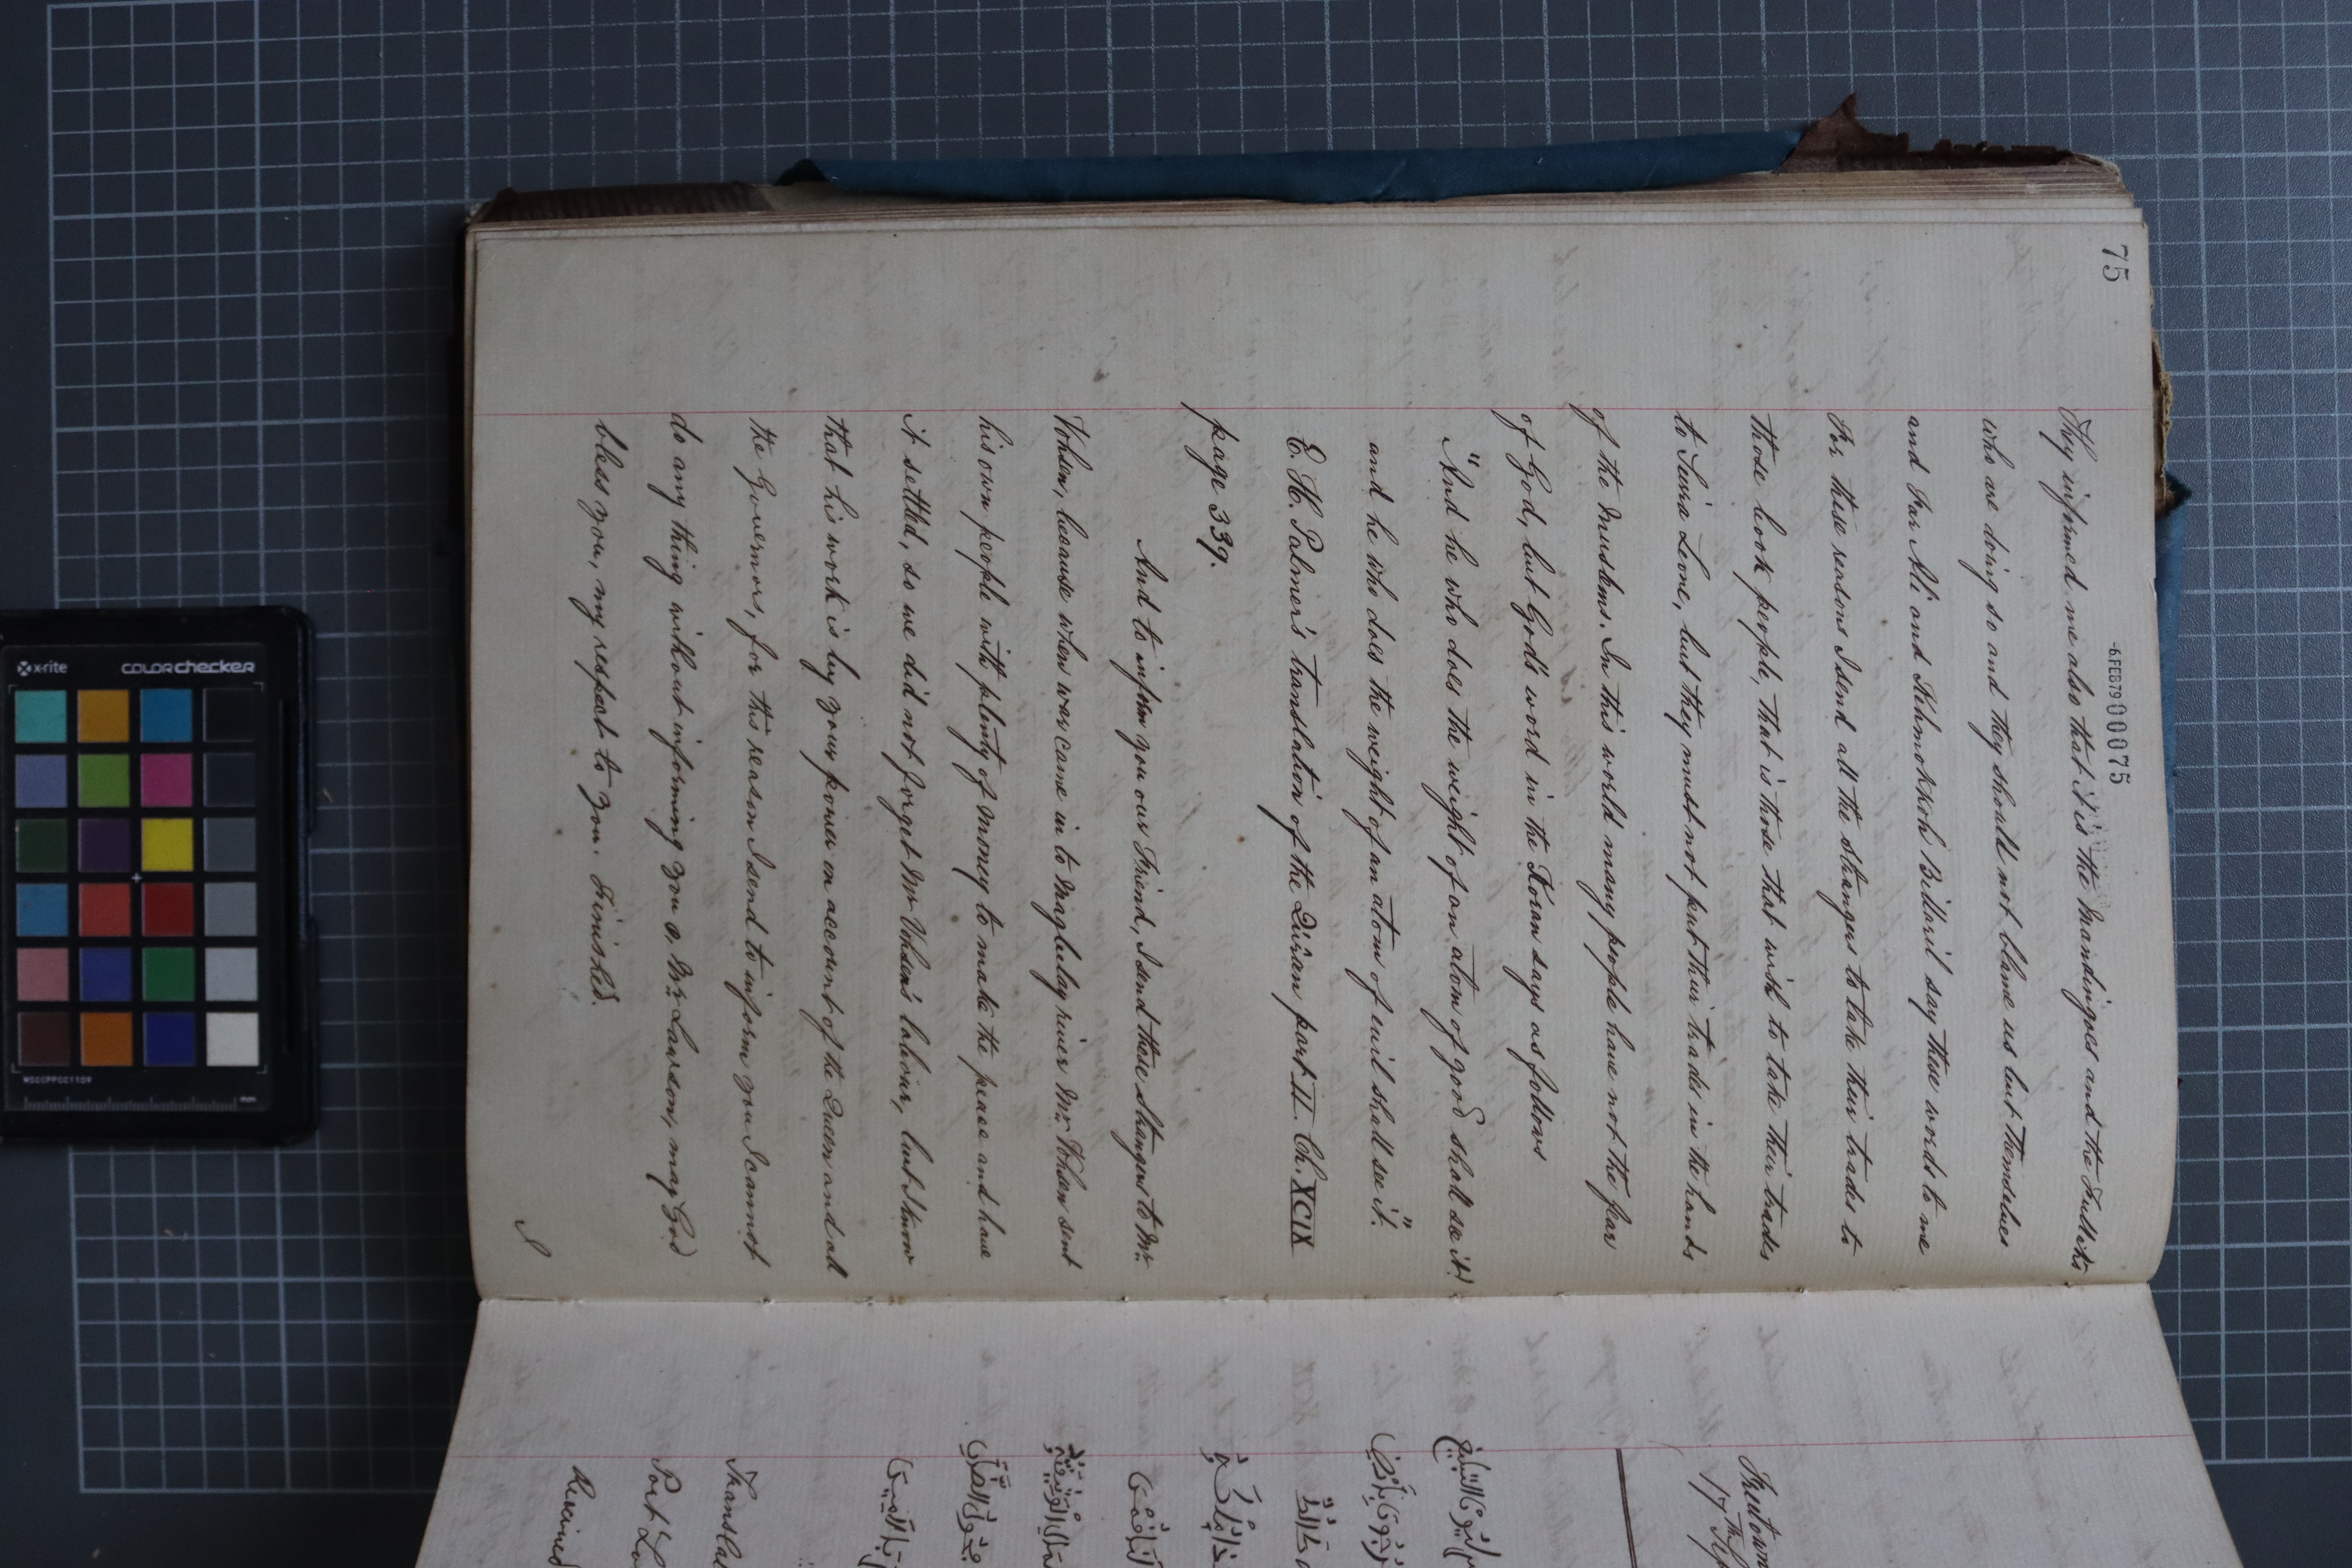 75
-6FEB79 000075
They informed me also that it is the Mandingoes and the Fullahs
who are doing so and they should not blame us but themselves
and Far Ali and Kehmokhoh Billaril say these words to me
For these reasons I send all the strangers to take their trades to
those book people, that is those that wish to take their trades
to Sierra Leone, but they must not put their trades in the hands
of the Muslims. In this world many people have not the fear
of God, but God's word in the Koran says as follows
"And he who does the weight of an atom of good shall see it!
and he who does the weight of an atom of evil shall see it."
E. H. Palmer's translation of the Qur'an part II. Ch. XCIX
page 339.
And to inform you our Friend, I send these strangers to Mr.
Vohsen, because when war came in to Maghulay river Mr. Vohsen sent
his own people with plenty of money to make the peace and have
it settled, so we did not forget Mr Vohsen's labour, but I know
that his work is by your power on account of the Queen and all
the Governors, for this reason I send to inform you I cannot
do any thing without informing you o. Mr. Lawson, may God
bless you, my respect to you. Finished.
I
Freetown
17th
Translat
Received
x-rite COLORchecker
mm